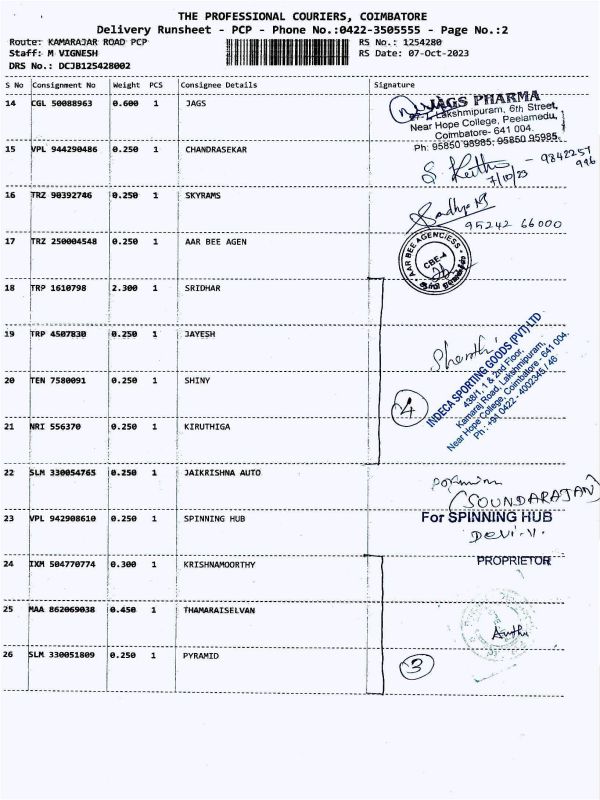 THE PROFESSIONAL COURIERS, COIMBATORE
Delivery Runsheet - PCP - Phone No.:0422-3505555 - Page No.:2
Route: KAMARAJAR ROAD PCP
RS No.: 1254280
Staff: M VIGNESH
RS Date: 07-Oct-2023
DRS No.: DCJB125428002
S No Consignment No Weight PCS Consignee Details Signature
14 CGL 50088963 0.600 1 JAGS
JAGS PHARMA
Lakshmipuram, 6th Street,
Near Hope College, Peelamedu,
Coimbatore- 641 004.
Ph: 95850 98985, 95850 95985.
15 VPL 944290486 0.250 1 CHANDRASEKAR
- 9842257
996
7/10/23
16 TRZ 90392746 0.250 1 SKYRAMS
Sadhya
95242 66000
17 TRZ 250004548 0.250 1 AAR BEE AGEN
AAR BEE AGENCIESS
CBE-4
18 TRP 1610798 2.300 1 SRIDHAR
19 TRP 4507830 0.250 1 JAYESH
Shanthi
INDECA SPORTING GOODS (PVT) LTD
438/1, 1 & 2nd Floor,
Kamaraj Road, Lakshmipuram,
Near Hope College, Coimbatore - 641 004.
Ph : +91 0422 - 4002345 / 46
20 TEN 7580091 0.250 1 SHINY
4
21 NRI 556370 0.250 1 KIRUTHIGA
22 SLM 330054765 0.250 1 JAIKRISHNA AUTO
(SOUNDARAJAN)
23 VPL 942908610 0.250 1 SPINNING HUB
For SPINNING HUB
Devi.V.
PROPRIETOR
24 IXM 504770774 0.300 1 KRISHNAMOORTHY
25 MAA 862069038 0.450 1 THAMARAISELVAN
Anthu
26 SLM 330051809 0.250 1 PYRAMID
3